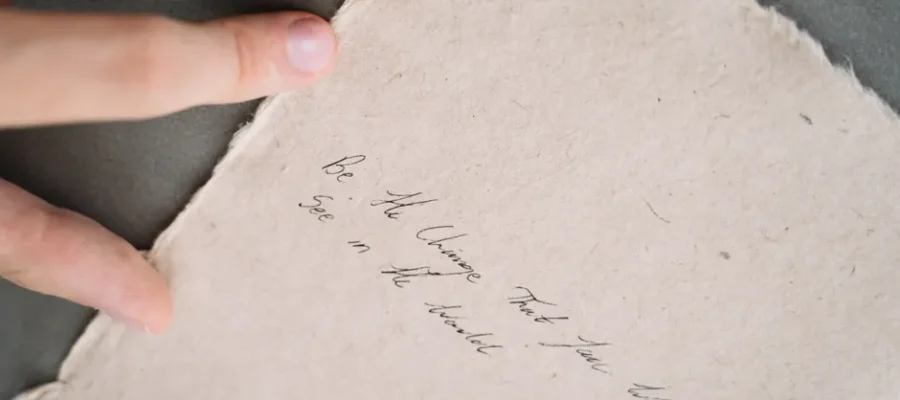 Be The Change That You
See in The World